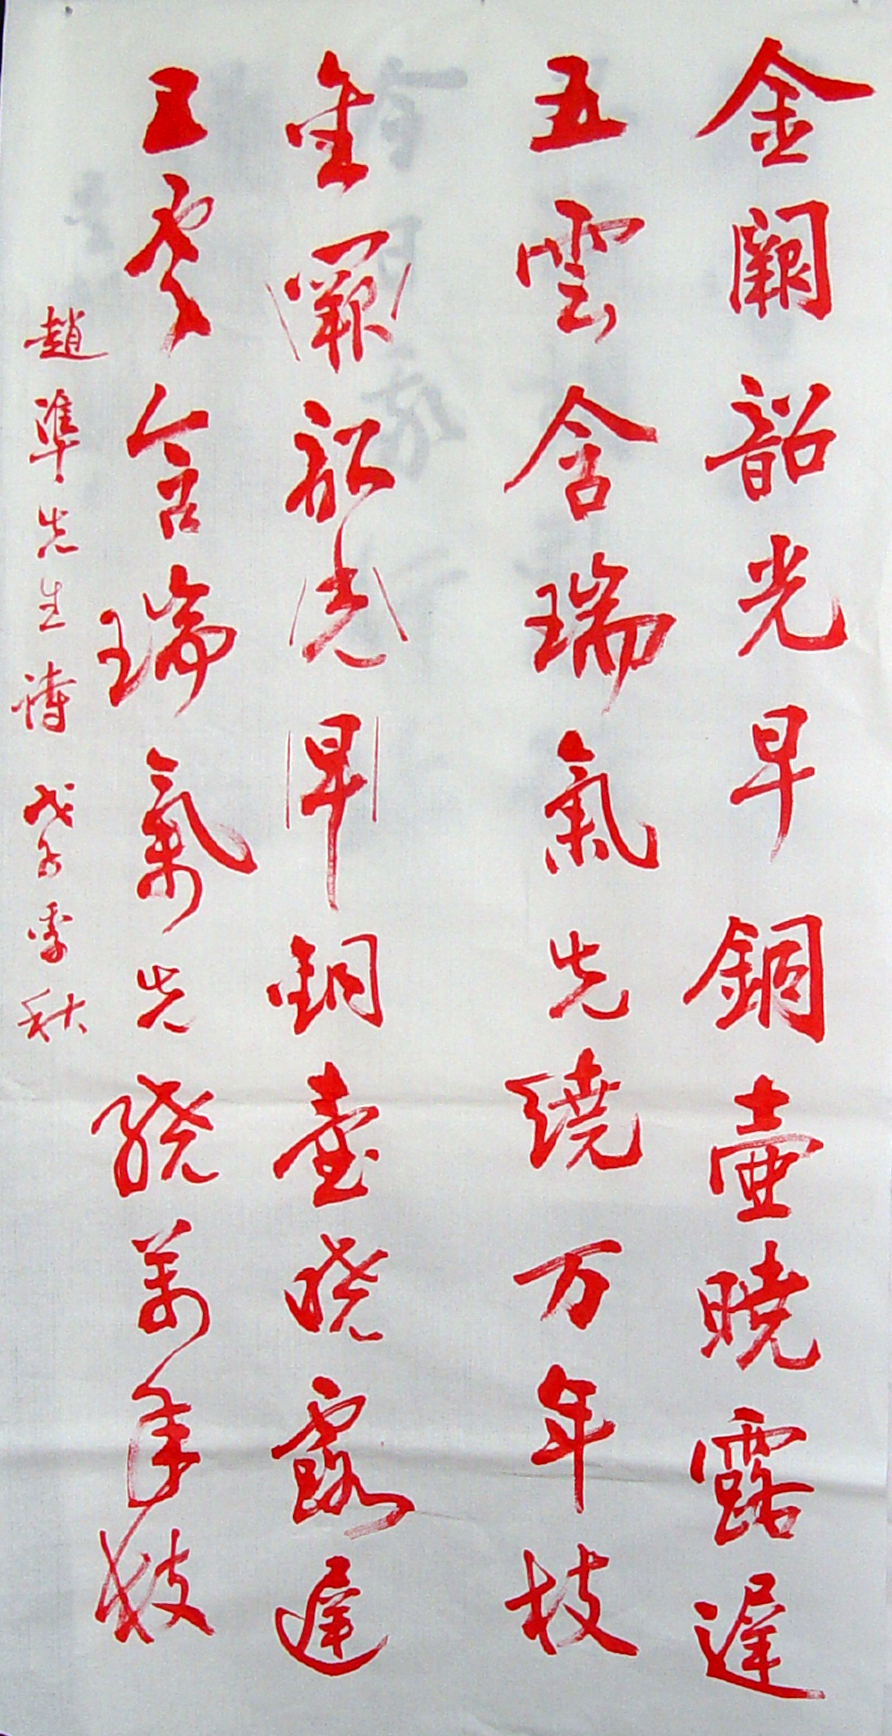 金闕韶光早銅壷曉露遲
五雲含瑞氣先繞万年枝
金闕韶光早銅壺曉露遲
五雲含瑞氣先繞萬年枝
趙準先生詩 戊子季秋